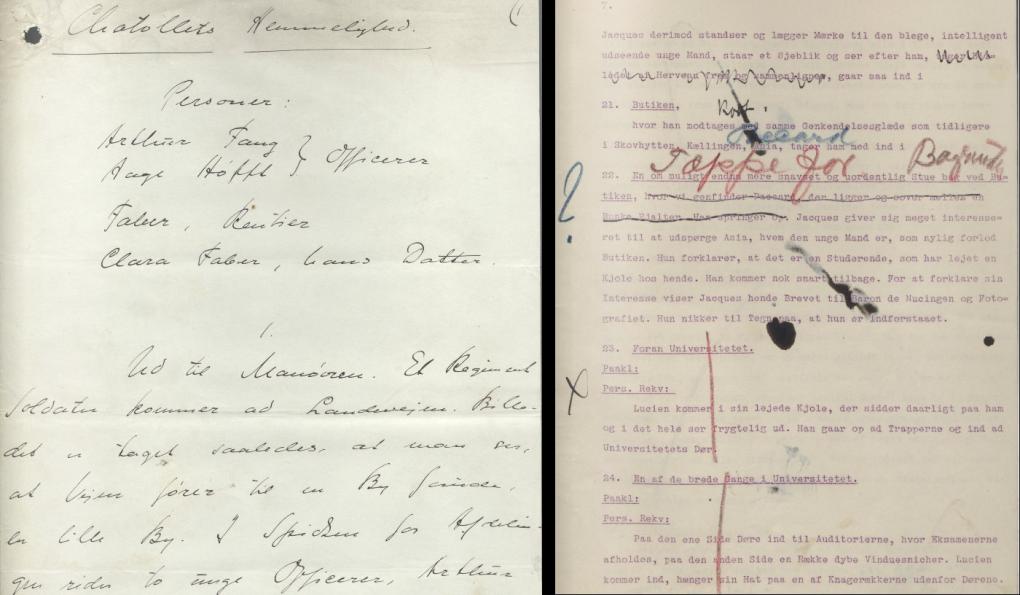 Chatollets Hemmelighed.
Personer:
Arthur Fang
Aage Höfft } Officerer
Faber, Rentier
Clara Faber, hans Datter.
1.
Ud til Manövren. Et Regiment
Soldater kommer ad Landevejen. Bille-
det er taget saaledes, at man ser,
at Vejen fører til en By
en lille By. I Spidsen for Afdelin-
gen rider to unge Officerer, Arthur
7.
Jacques derimod standser og lægger Mærke til den blege, intelligent
udseende unge Mand, staar et Øjeblik og ser efter ham,
og sammenligner, gaar saa ind i
21. Butiken,
Kort.
hvor han modtages med samme Genkendelsesglæde som tidligere
i Skovhytten. Kællingen, Asia, tager ham med ind i
Tæppe for
22. En om muligt endnu mere snavset og uordentlig Stue bag ved Bu-
tiken, hvor vi genfinder Paccard, der ligger og sover mellem en
Han springer op. Jacques giver sig meget interesse-
ret til at udspørge Asia, hvem den unge Mand er, som nylig forlod
Butiken. Hun forklarer, at det er en Studerende, som har lejet en
Kjole hos hende. Han kommer nok snart tilbage. For at forklare sin
Interesse viser Jacques hende Brevet til Baron de Nucingen og Foto-
grafiet. Hun nikker til Tegn paa, at hun er indforstaaet.
23. Foran Universitetet.
Paakl:
X
Pers. Rekv:
Lucien kommer i sin lejede Kjole, der sidder daarligt paa ham
og i det hele ser frygtelig ud. Han gaar op ad Trapperne og ind ad
Universitetets Dør.
24. En af de brede Gange i Universitetet.
Paakl:
Pers. Rekv:
Paa den ene Side Døre ind til Auditorierne, hvor Eksamenerne
afholdes, paa den anden Side en Række dybe Vinduesnicher. Lucien
kommer ind, hænger sin Hat paa en af Knagerækkerne udenfor Dørene.